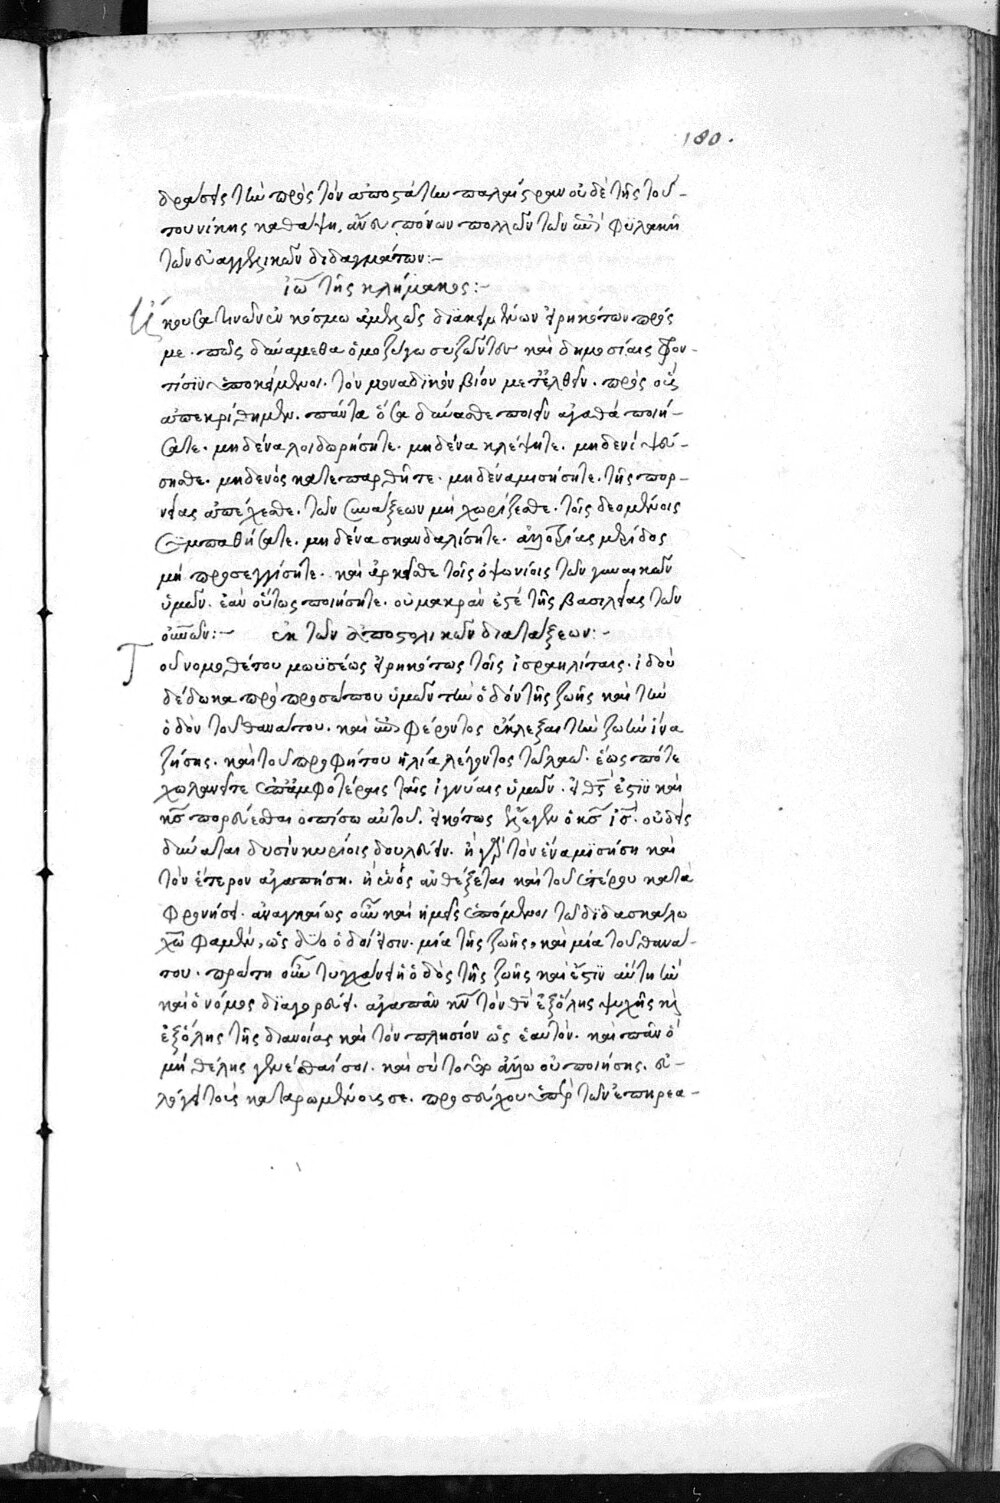 180.
δράσεις τὴν πρὸς τὸν ἀποστάτην πάλαίστραν οὐδὲ τῆς τού-
του νίκης καθάψη, ἄνευ πόνων πολλῶν τῶν ἐπὶ φυλακῇ
τῶν εὐαγγελικῶν διδαγμάτων:-
ἰω τῆς κλήμακος:-
Ἤκουσα τινῶν ἐν κόσμω ἀμελῶς διακειμένων εἰρηκότων πρός
με. πῶς δυνάμεθα ὁμοζύγω συζῶντες καὶ δημοσίαις φρον-
τίσιν ὑποκείμενοι. τὸν μοναδικὸν βίον μετελθεῖν. πρὸς οὓς
ἀπεκρίθημεν. πάντα ὅσα δύνασθε ποιεῖν ἀγαθὰ ποιή-
σατε. μηδένα λοιδωρήσητε. μηδένα κλέψητε. μηδενὶ ψεύ-
σησθε. μηδενὸς κατεπαρθῆτε. μηδένα μισήσητε. τῆς πορ-
νείας ἀπέχεσθε. τῶν συνάξεων μὴ χωρίζεσθε. τοῖς δεομένοις
συμπαθήσατε. μηδένα σκανδαλίσητε. ἀλλοτρίας μερίδος
μὴ προσεγγίσητε. καὶ ἀρκεῖσθε τοῖς ὀψωνίοις τῶν γυναικῶν
ὑμῶν. ἐὰν οὕτως ποιήσητε. οὐ μακρὰν ἐστὲ τῆς βασιλείας τῶν
οὐνῶν:- ἐκ τῶν ἀποστολικῶν διατάξεων:-
Τοῦ νομοθέτου μωϋσέως εἰρηκότως τοῖς ἰσραηλίταις. ἰδοὺ
δέδωκα πρὸ προσώπου ὑμῶν τὴν ὁδὸν τῆς ζωῆς καὶ τὴν
ὁδὸν τοῦ θανάτου. καὶ ἐπιφέροντος ἔκλεξαι τὴν ζωὴν ἵνα
ζήσης. καὶ τοῦ προφήτου ἠλία λέγοντος τῶ λαῶ. ἕως πότε
χωλανεῖτε ἐπ' ἀμφοτέραις ταῖς ἰγνύαις ὑμῶν. εἰ θς ἐστὶν καὶ
κς πορεύεσθαι ὀπίσω αὐτοῦ. εἰκότως ἔλεγεν ὁ κς ις. οὐδεὶς
δύναται δυσὶν κυρίοις δουλεύειν. ἢ γὰρ τὸν ἕνα μισήση καὶ
τὸν ἕτερον ἀγαπήση. ἢ ἑνὸς ἀνθέξεται καὶ τοῦ ἑτέρου κατα
φρονήσει. ἀναγκαίως οὖν καὶ ἡμεῖς ἑπόμενοι τῶ διδασκάλω
χῶ φαμέν, ὡς δύο ὁδοί εἰσιν. μία τῆς ζωῆς, καὶ μία τοῦ θανά-
του. πρώτη οὖν τυγχάνει ἡ ὁδὸς τῆς ζωῆς καὶ ἔστιν αὕτη ἣν
καὶ ὁ νόμος διαγορεύει. ἀγαπᾶν κν τὸν θν ἐξ ὅλης ψυχῆς κὶ
ἐξ ὅλης τῆς διανοίας καὶ τὸν πλησίον ὡς ἑαυτόν. καὶ πᾶν ὃ
μὴ θέλης γενέσθαι σοι. καὶ σὺ τοῦτο ἄλλω οὐ ποιήσης. εὐ-
λόγει τοὺς καταρωμένους σε. προσεύχου ὑπὲρ τῶν ἐπηρεα-